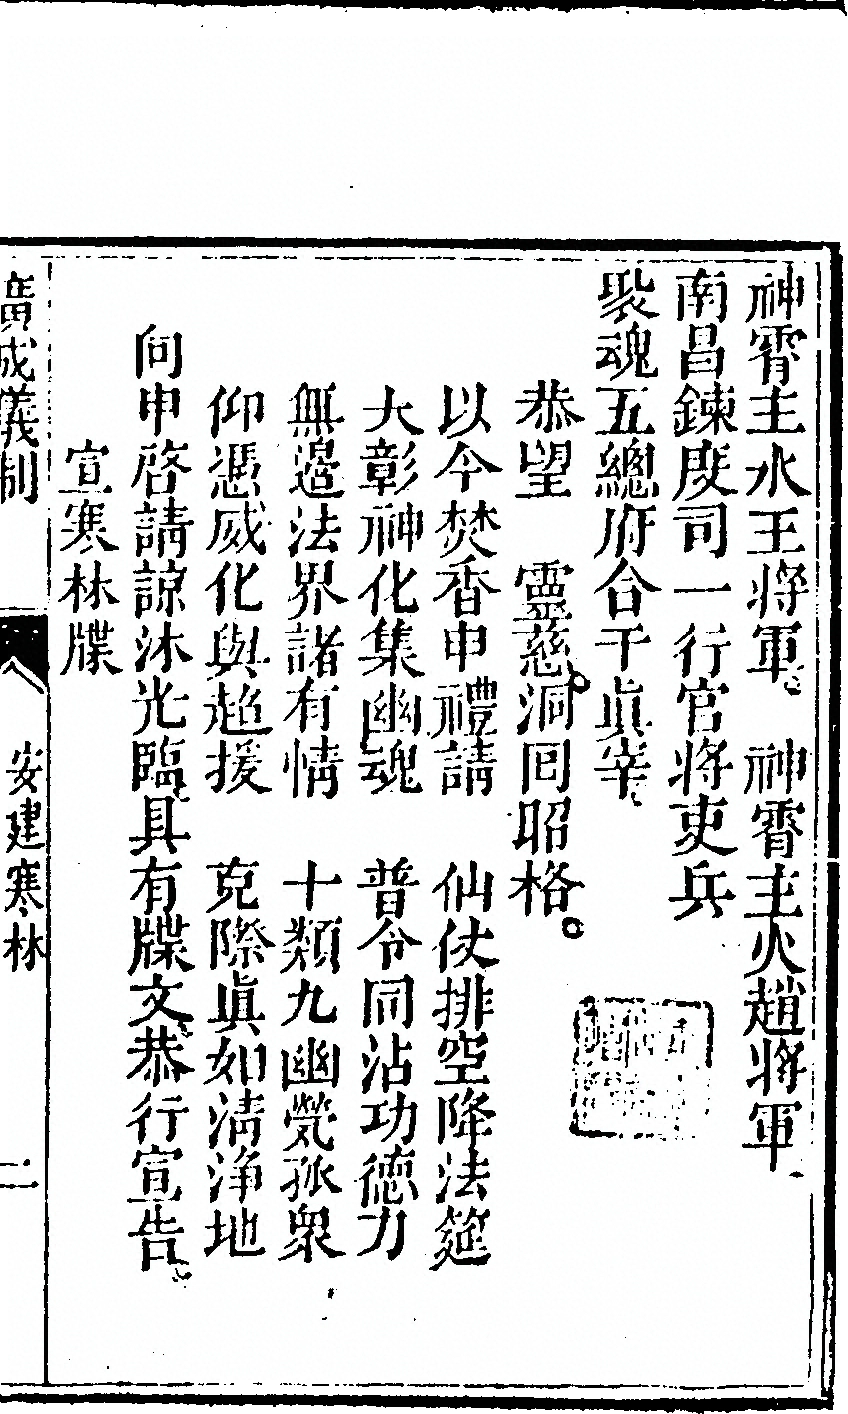 神霄主水王將軍 神霄主火趙將軍
南昌鍊度司一行官將吏兵
聚魂五總府合干眞宰
恭望 靈慈洞回昭格
以今焚香申禮請 仙仗排空降法筵
大彰神化集幽魂 普令同沾功德力
無邊法界諸有情 十類九幽煢孤衆
仰憑威化與超援 克際眞如淸淨地
向申啓請諒沐光臨具有牒文恭行宣告
宣寒林牒
廣成儀制 安建寒林 二